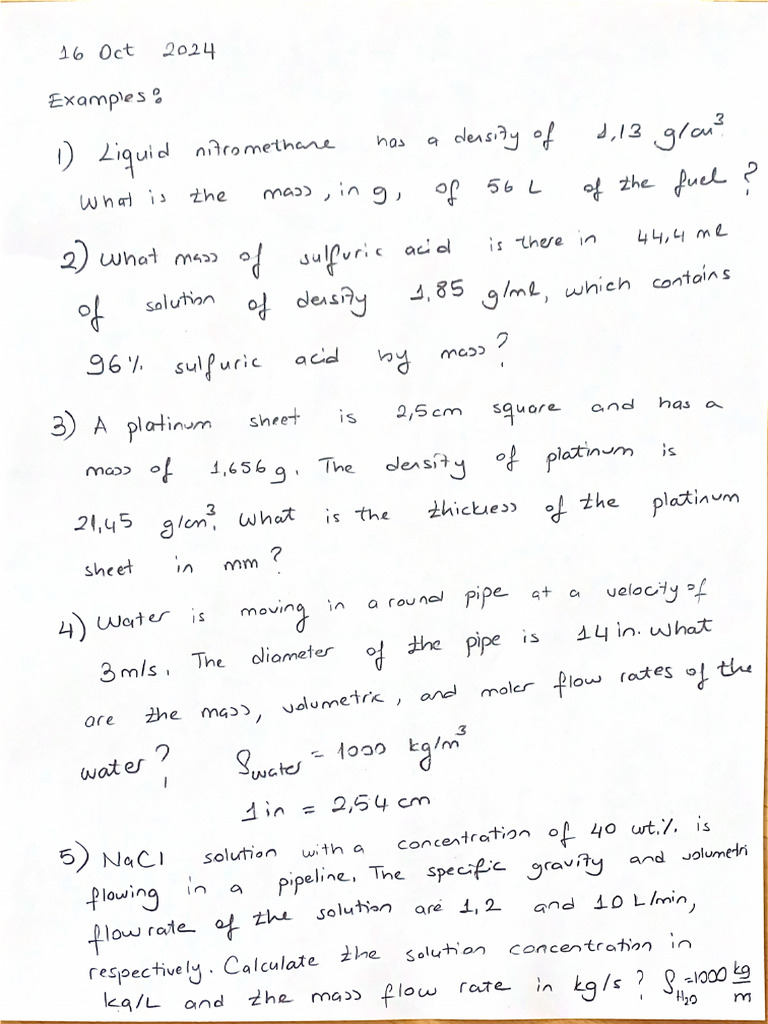 16 Oct 2024
Examples:
1) Liquid nitromethane has a density of 1,13 g/cm³
What is the mass, in g, of 56 L of the fuel?
2) What mass of sulfuric acid is there in 44,4 ml
of solution of density 1,85 g/ml, which contains
96% sulfuric acid by mass?
3) A platinum sheet is 2,5cm square and has a
mass of 1,656 g. The density of platinum is
21,45 g/cm³. What is the thickness of the platinum
sheet in mm?
4) Water is moving in a round pipe at a velocity of
3 m/s. The diameter of the pipe is 14 in. What
are the mass, volumetric, and molar flow rates of the
water? ρwater = 1000 kg/m³
1 in = 2,54 cm
5) NaCl solution with a concentration of 40 wt.% is
flowing in a pipeline. The specific gravity and volumetri
flow rate of the solution are 1,2 and 10 L/min,
respectively. Calculate the solution concentration in
kg/L and the mass flow rate in kg/s? ρH₂O =1000 kg/m